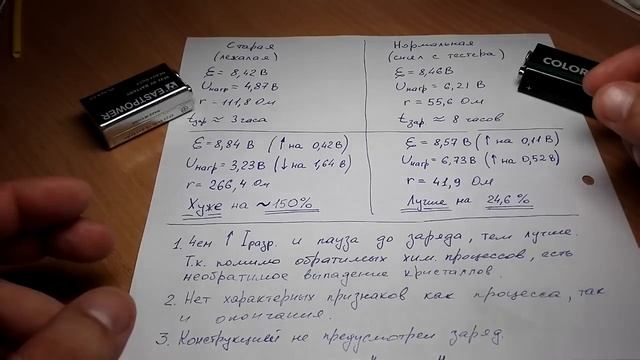 Старая
(лежалая)
ξ = 8,42 В
Uнагр = 4,87 В
r - 111,8 Ом
tзар ≈ 3 часа
Нормальная
(снял с тестера)
ξ = 8,46 В
Uнагр = 6,21 В
r = 55,6 Ом
tзар ≈ 8 часов
ξ = 8,84 В (↑ на 0,42 В)
Uнагр = 3,23 В (↓ на 1,64 В)
r = 266,4 Ом
Хуже на ~150%
ξ = 8,57 В (↑ на 0,11 В)
Uнагр = 6,73 В (↑ на 0,52 В)
r = 41,9 Ом
Лучше на 24,6 %
1. Чем ↑ Iразр. и пауза до заряда, тем лучше.
Т.к. помимо обратимых хим. процессов, есть
необратимое выпадение кристаллов.
2. Нет характерных признаков как процесса, так
и окончания.
3. Конструкцией не предусмотрен заряд.
EASTPOWER
COLOR